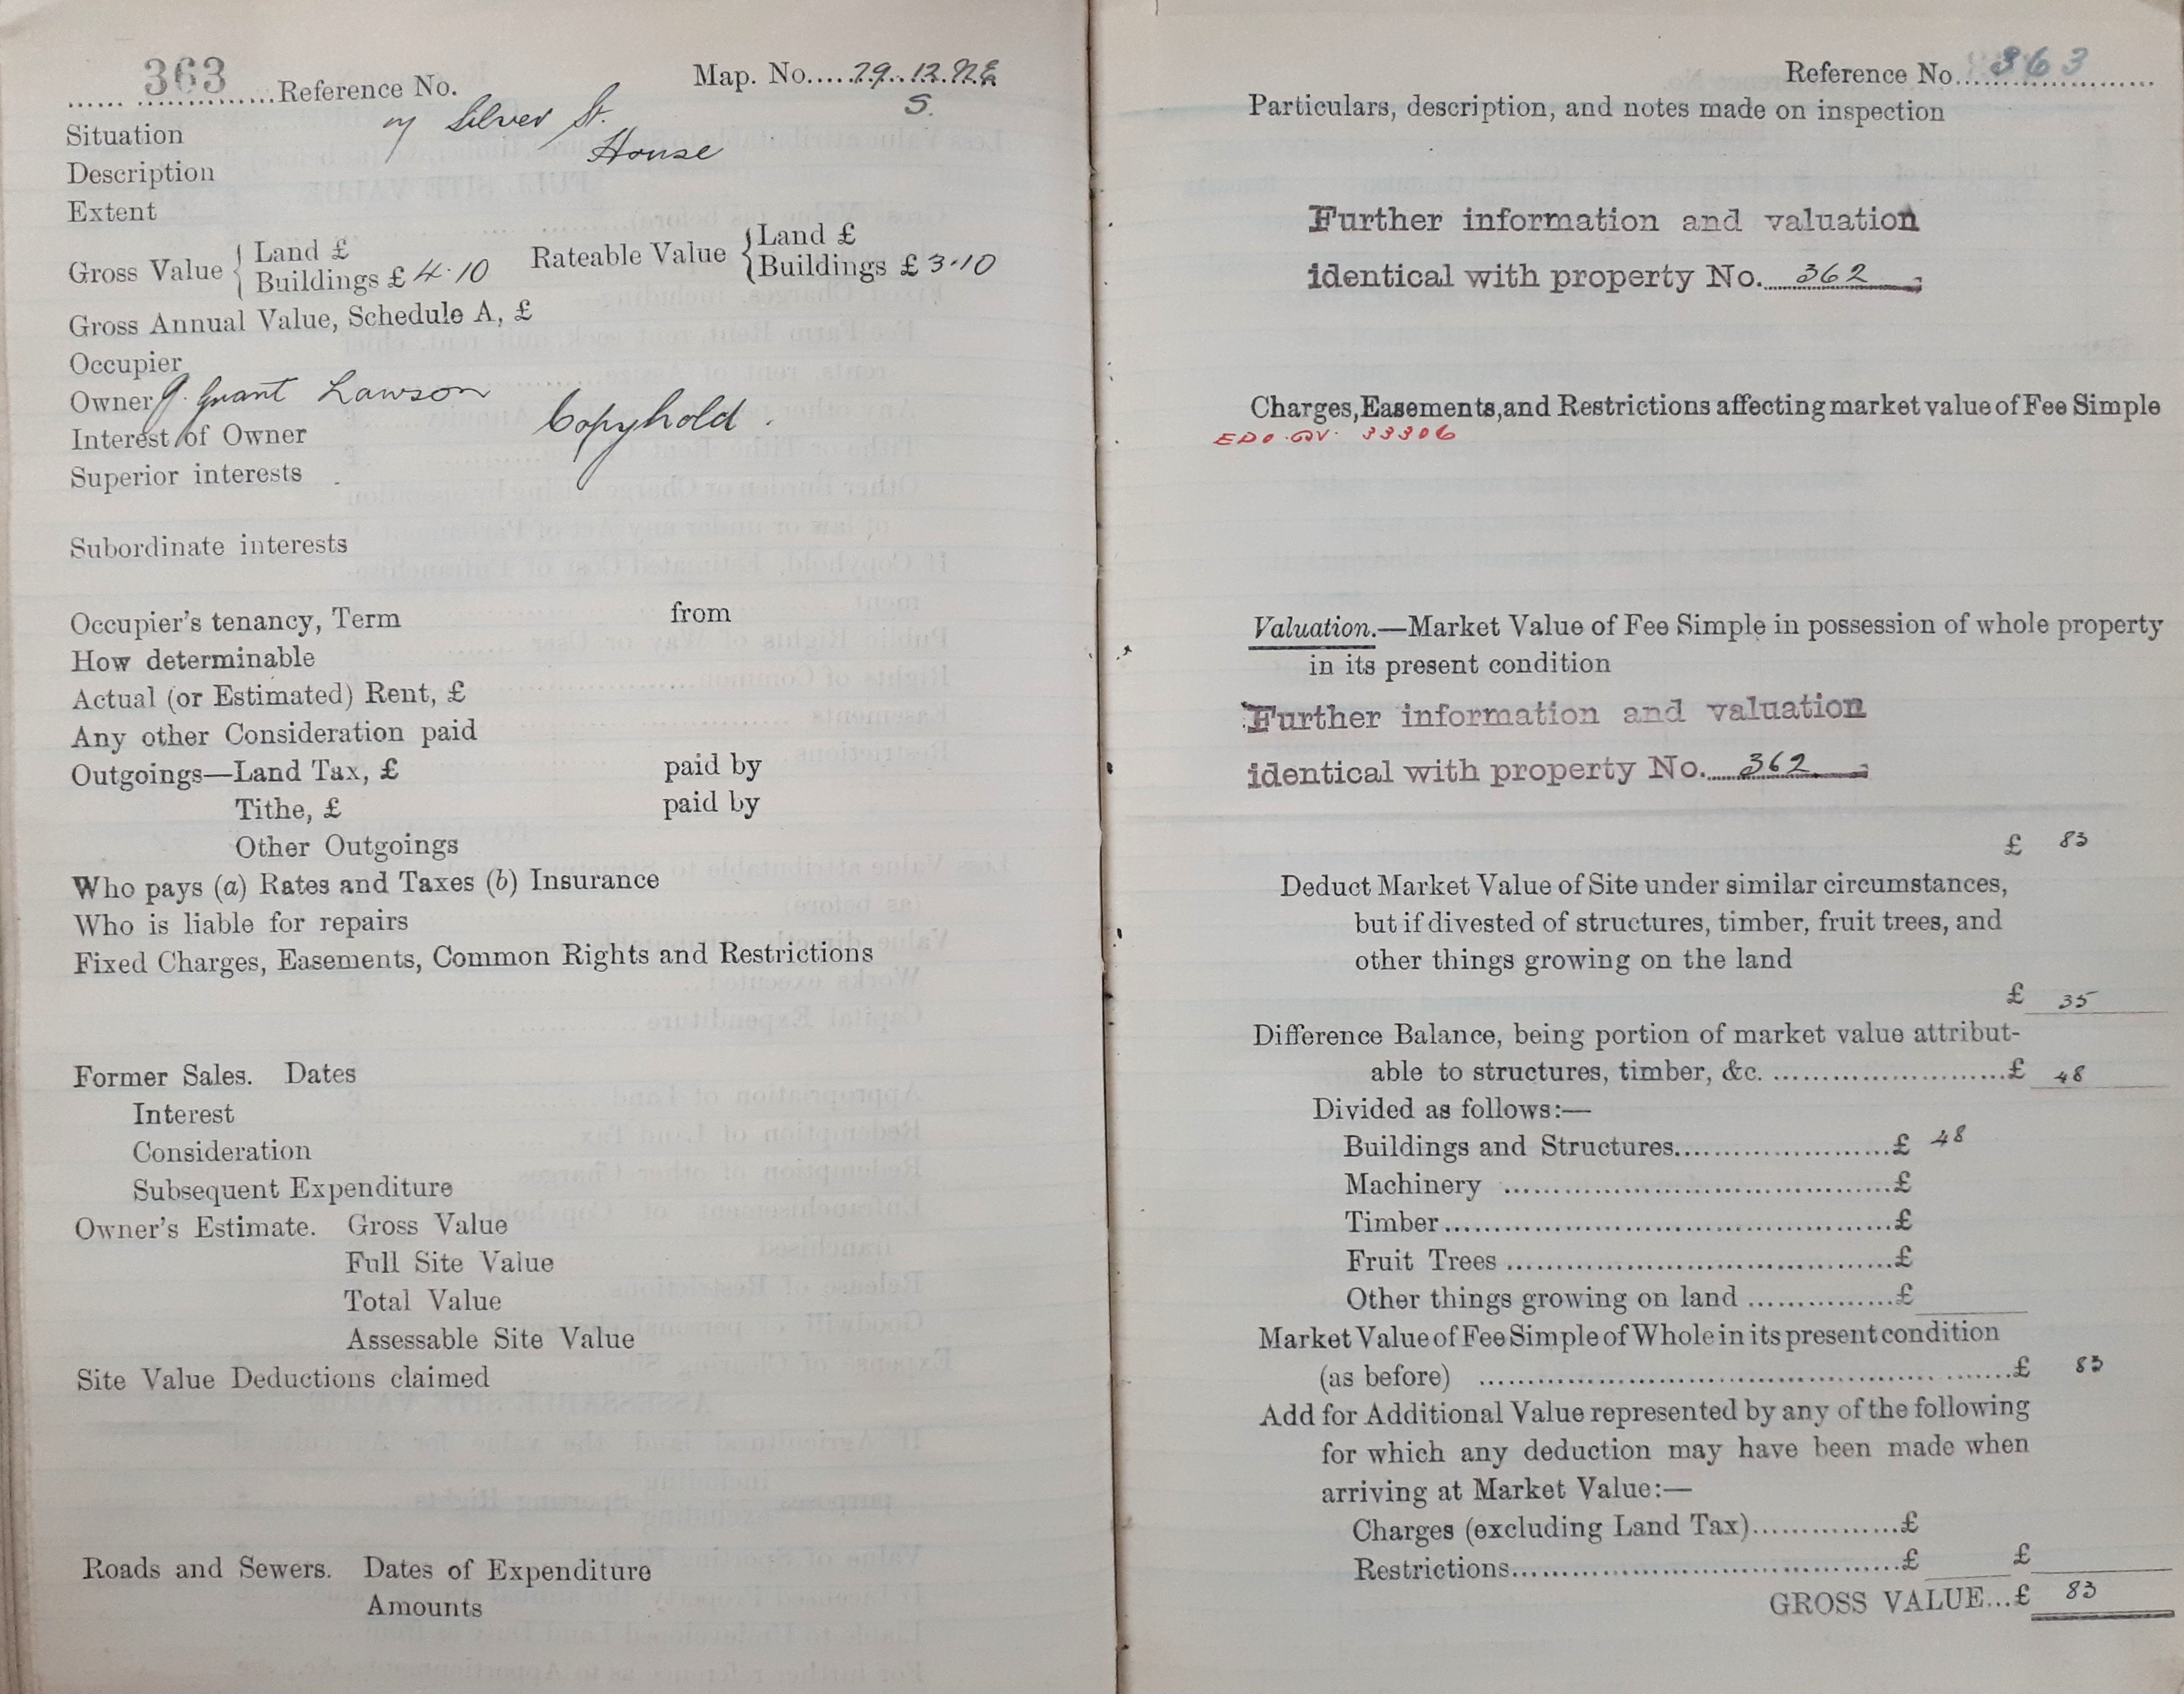 363 Reference No.
Map. No. 29.12.N.E.
S.
Situation Silver St.
Description House
Extent
Gross Value { Land £
Buildings £ 4.10
Rateable Value { Land £
Buildings £ 3.10
Gross Annual Value, Schedule A, £
Occupier
Owner J. Grant Lawson
Interest of Owner Copyhold.
Superior interests
Subordinate interests
Occupier's tenancy, Term from
How determinable
Actual (or Estimated) Rent, £
Any other Consideration paid
Outgoings—Land Tax, £ paid by
Tithe, £ paid by
Other Outgoings
Who pays (a) Rates and Taxes (b) Insurance
Who is liable for repairs
Fixed Charges, Easements, Common Rights and Restrictions
Former Sales. Dates
Interest
Consideration
Subsequent Expenditure
Owner's Estimate. Gross Value
Full Site Value
Total Value
Assessable Site Value
Site Value Deductions claimed
Roads and Sewers. Dates of Expenditure
Amounts
Reference No. 363
Particulars, description, and notes made on inspection
Further information and valuation
identical with property No. 362
Charges, Easements, and Restrictions affecting market value of Fee Simple
33306
Valuation.—Market Value of Fee Simple in possession of whole property
in its present condition
Further information and valuation
identical with property No. 362
£ 83
Deduct Market Value of Site under similar circumstances,
but if divested of structures, timber, fruit trees, and
other things growing on the land
£ 35
Difference Balance, being portion of market value attribut-
able to structures, timber, &c. £ 48
Divided as follows:—
Buildings and Structures £ 48
Machinery £
Timber £
Fruit Trees £
Other things growing on land £
Market Value of Fee Simple of Whole in its present condition
(as before) £ 83
Add for Additional Value represented by any of the following
for which any deduction may have been made when
arriving at Market Value:—
Charges (excluding Land Tax) £
Restrictions £ £
GROSS VALUE...£ 83